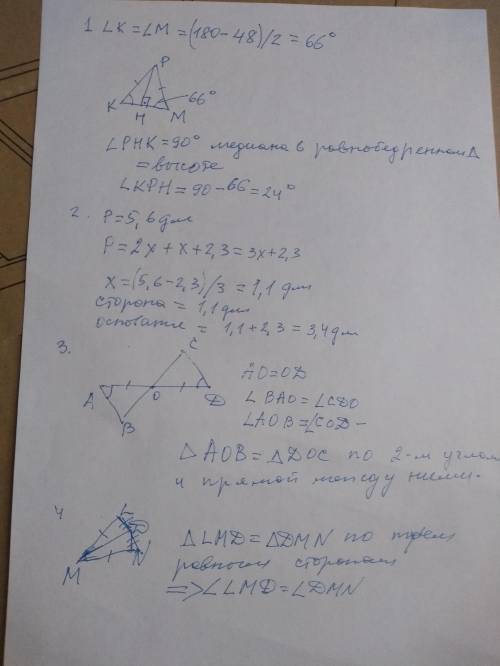 1. ∠K = ∠M = (180 - 48)/2 = 66°
P
K
H
M
66°
∠PHK = 90° медиана в равнобедренном Δ
= высоте
∠KPH = 90 - 66 = 24°
2. P = 5,6 дм
P = 2x + x + 2,3 = 3x + 2,3
x = (5,6 - 2,3)/3 = 1,1 дм
сторона = 1,1 дм
основание = 1,1 + 2,3 = 3,4 дм
3.
C
A
O
D
B
AO = OD
∠BAO = ∠CDO
∠AOB = ∠COD -
Δ AOB = Δ DOC по 2-м углам
и прямой между ними.
4
L
D
M
N
Δ LMD = Δ DMN по трём
равным сторонам
=> ∠LMD = ∠DMN